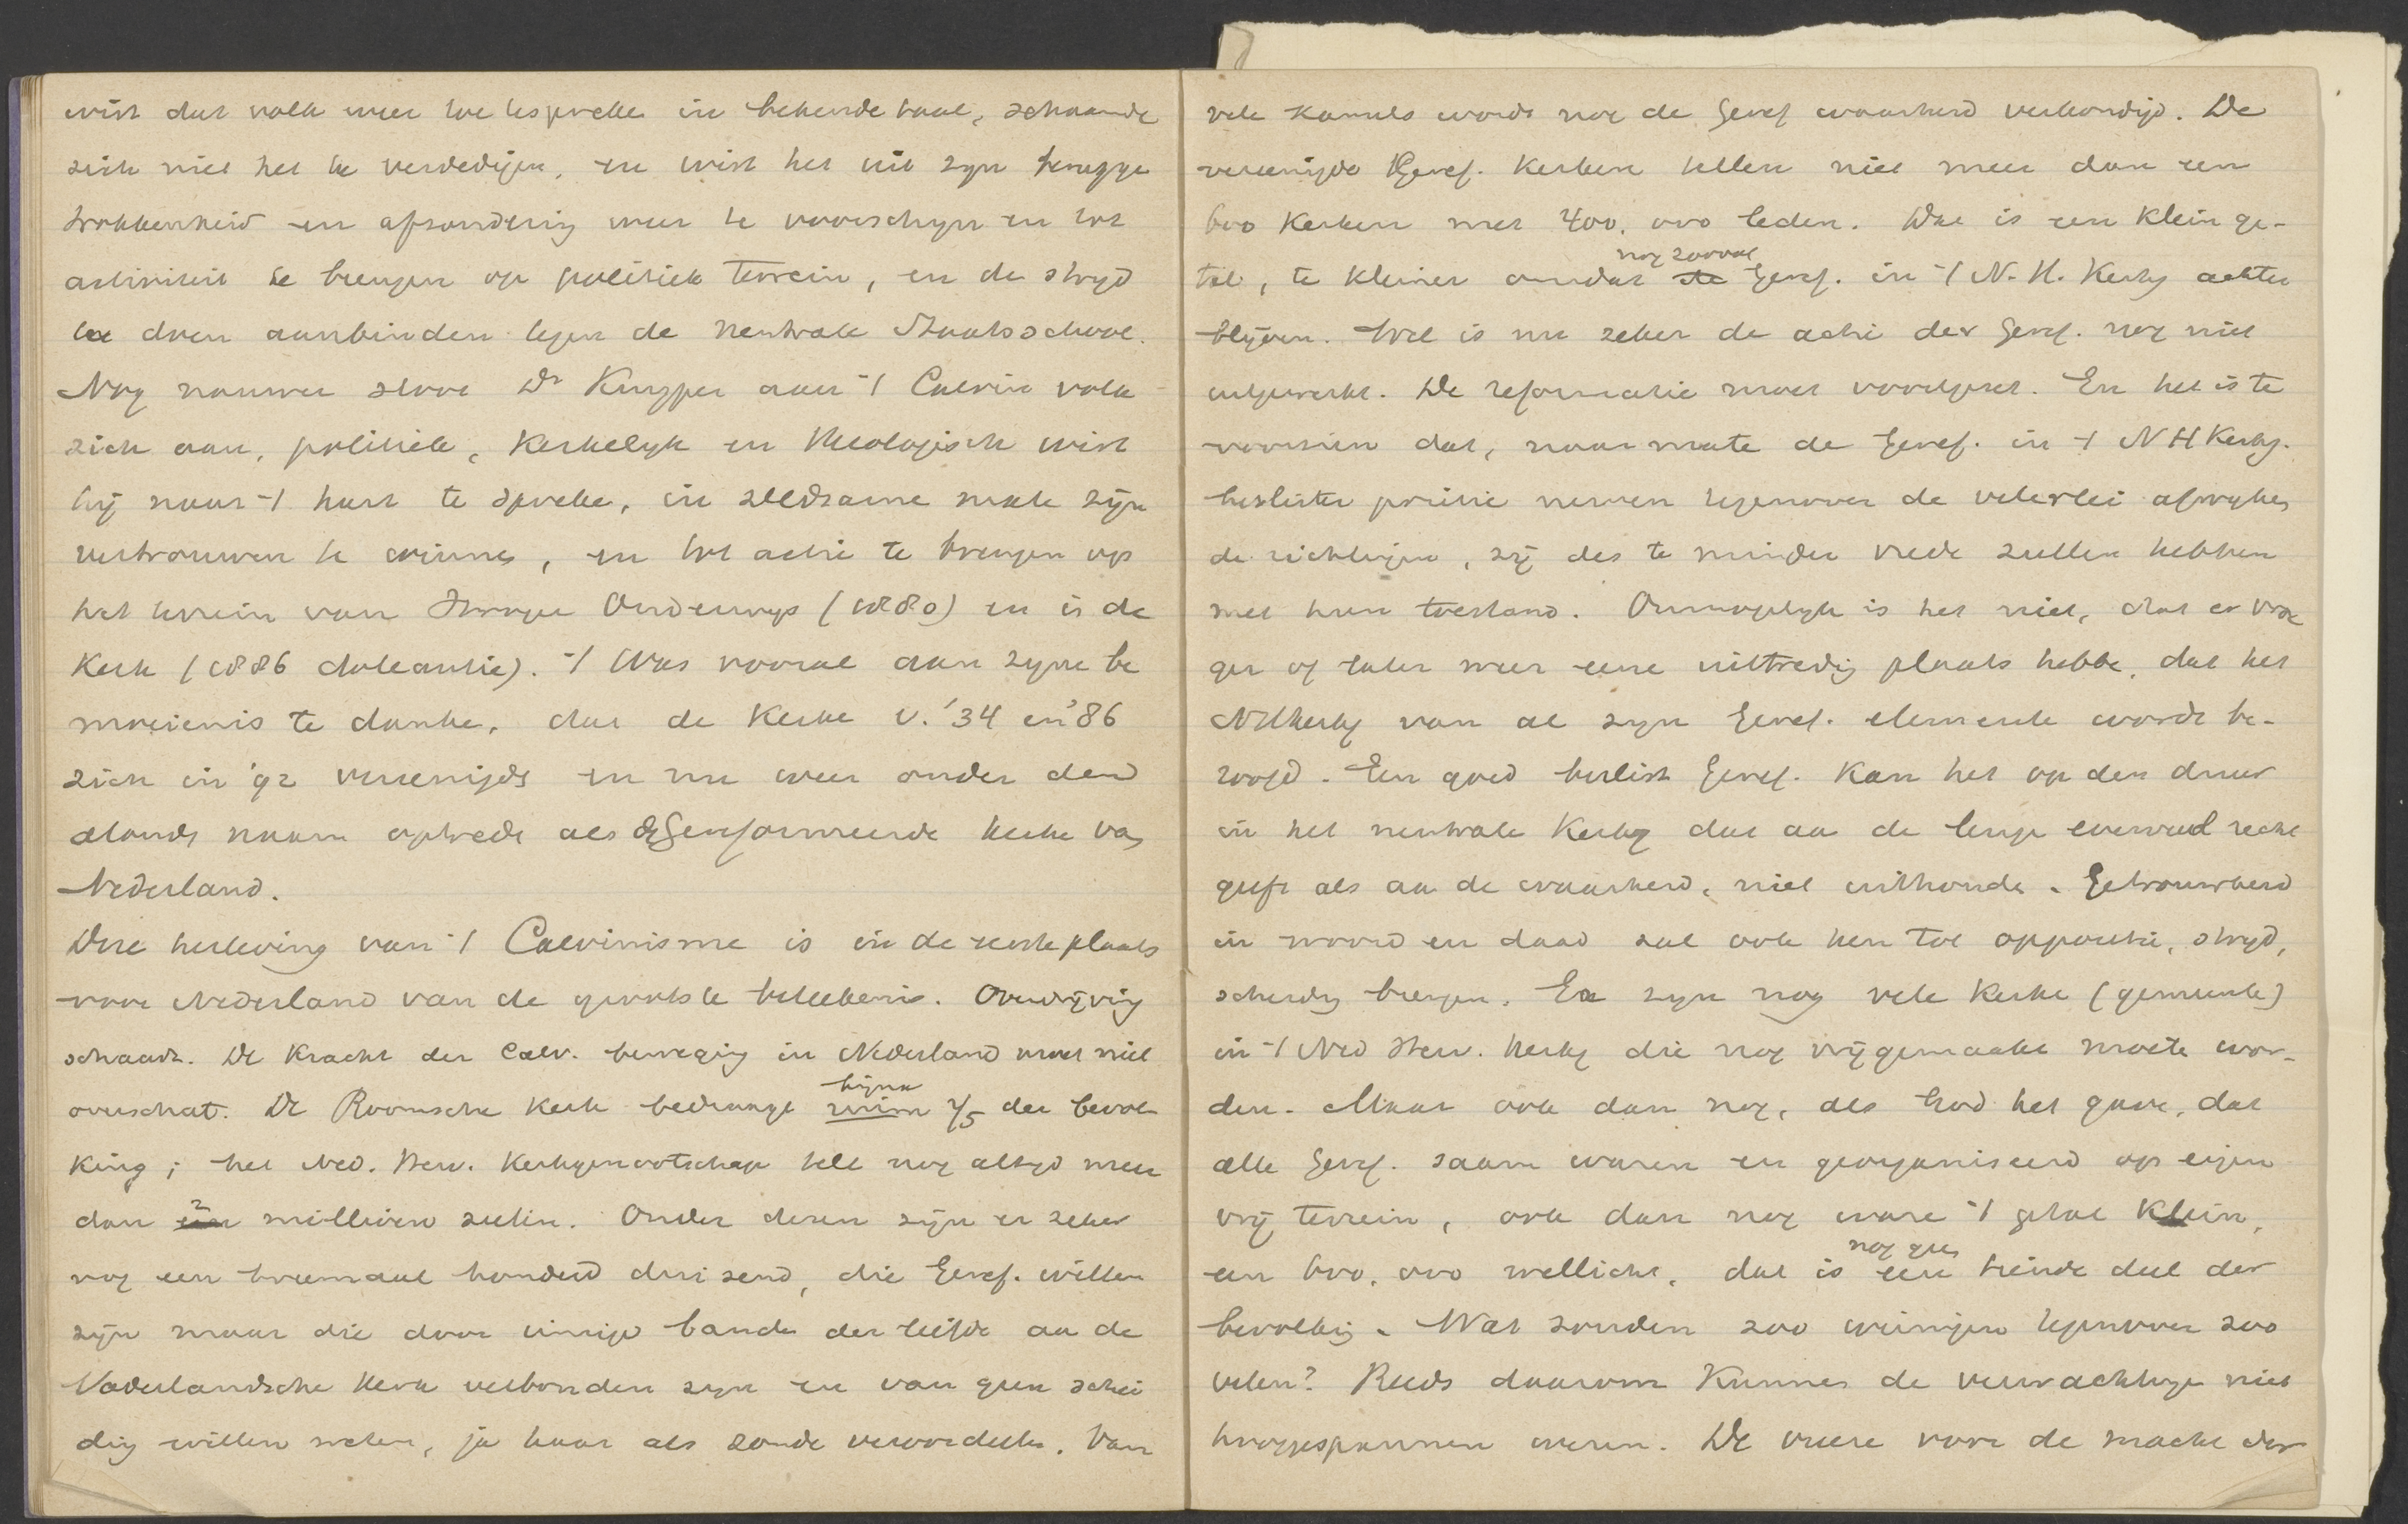 wist dat volk weer toe te spreke in bekende taal, schaamde
zich niet het te verdedigen, en wist het uit zyn terugge
trokkenheid en afzondering weer te voorschyn en tot
activiteit te brengen op politiek terrein, en de stryd
te doen aanbinden tegen de neutrale Staatsschool.
Nog nauwer sloot Dr Kuyper aan 't Calvin volk
zich aan, politiek, kerkelyk en theologisch wist
hij naar 't hart te spreke, in zeldzame mate zijn
vertrouwen te winnen, en tot actie te brengen op
het terrein van Hooger Onderwys (1880) en in de
Kerk (1886 doleantie). 't Was vooral aan zyne be
moeienis te danke, dat de Kerke v. '34 en '86
zich in '92 vereenigde en nu weer onder den
alouden naam optrede als de Gereformeerde Kerke van
Nederland.
Deze herleving van 't Calvinisme is in de eerste plaats
voor Nederland van de grootste beteekenis. Overdrijving
schaadt. De kracht der Calv. beweging in Nederland moet niet
overschat. De Roomsche Kerk bedraagt bijna ruim 2/5 der bevol
king; het Ned. Herv. Kerkgenootschap telt nog altyd meer
dan 2 millioen zielen. Onder dezen zijn er zeker
nog een tweemaal honderd duizend, die Geref. willen
zijn maar die door innige banden der liefde aan de
Vaderlandsche Kerk verbonden zyn en van geen schei
ding willen weten, ja haar als zonde veroordeelen. Van
vele Kansels wordt nog de Geref waarheid verkondigd. De
vereenigde Geref. Kerken tellen niet meer dan een
600 Kerken met 400,000 leden. Dat is een klein ge-
tal, te kleiner omdat nog zooveel Geref. in 't N. H. Kerkg achter
blijven. Wel is nu zeker de actie der Geref. nog niet
uitgewerkt. De reformatie moet voortgezet. En het is te
voorzien dat, naarmate de Geref. in 't N H Kerkg.
beslister positie nemen tegenover de velerlei afwyken
de richtingen, zij des te minder vrede zullen hebben
met hun toestand. Onmogelyk is het niet, dat er vroe
ger of later weer eene uittreding plaats hebbe, dat het
NHKerkg van al zyn Geref. elementen wordt be-
roofd. Een goed beslist Geref. kan het op den duur
in het neutrale Kerkg dat aan de leugen evenveel recht
geeft als aan de waarheid, niet uithouden. Getrouwheid
in woord en daad zal ook hen tot oppositie, stryd,
scheiding brengen. Er zyn nog vele Kerke (gemeente)
in 't Ned Herv. Kerkg die nog vrijgemaakt moete wor-
den. Maar ook dan nog, als God het gave, dat
alle Geref. saam waren en georganiseerd op eigen
vrij terrein, ook dan nog ware 't getal klein,
een 600,000 wellicht, dat is nog geen tiende deel der
bevolking. Wat zouden zoo weinigen tegenover zoo
velen? Reeds daarom kunnen de verwachtingen niet
hooggespannen wezen. De vreeze voor de macht der